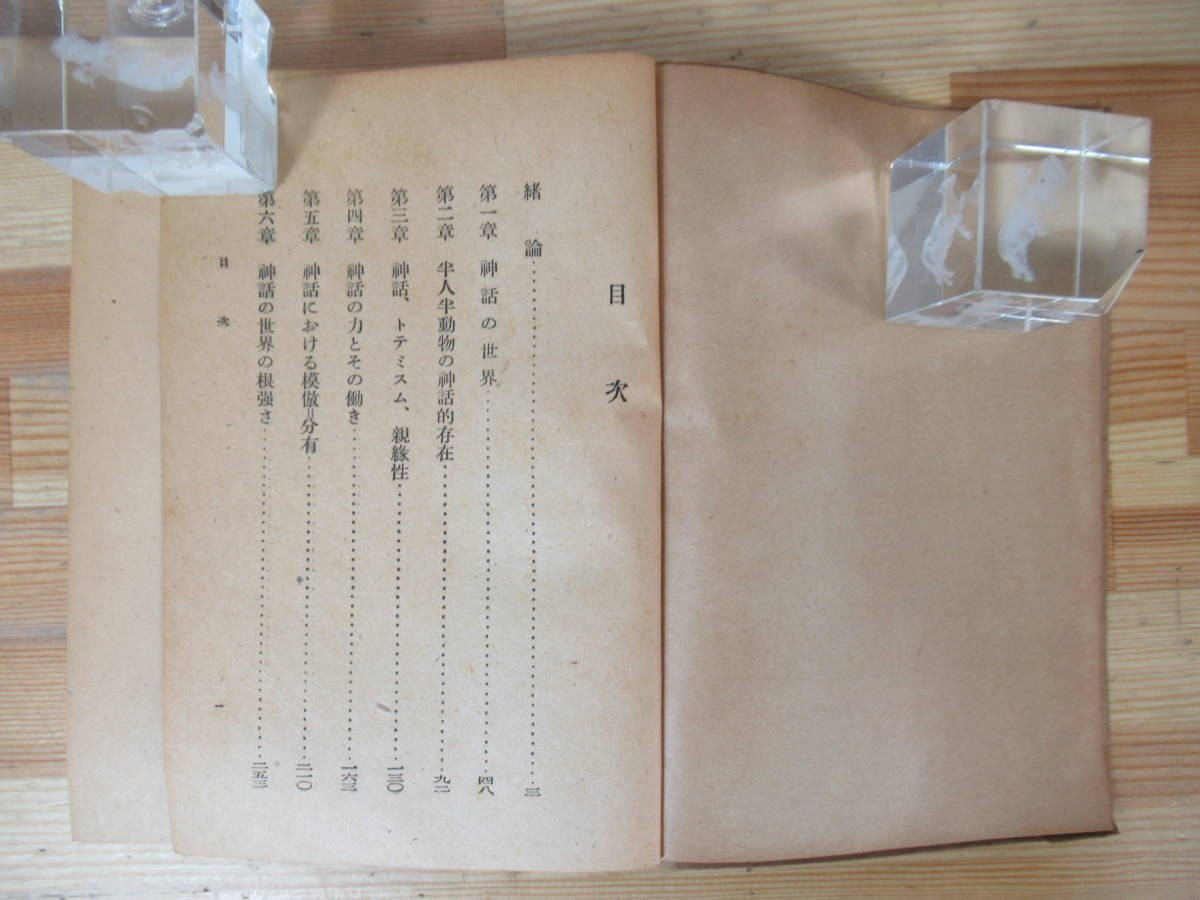 目次
緒論……三
第一章 神話の世界……四八
第二章 半人半動物の神話的存在……九二
第三章 神話、トテミスム、親緣性……一三〇
第四章 神話の力とその働き……一六三
第五章 神話における模倣=分有……二一〇
第六章 神話の世界の根強さ……二五三
目次
一